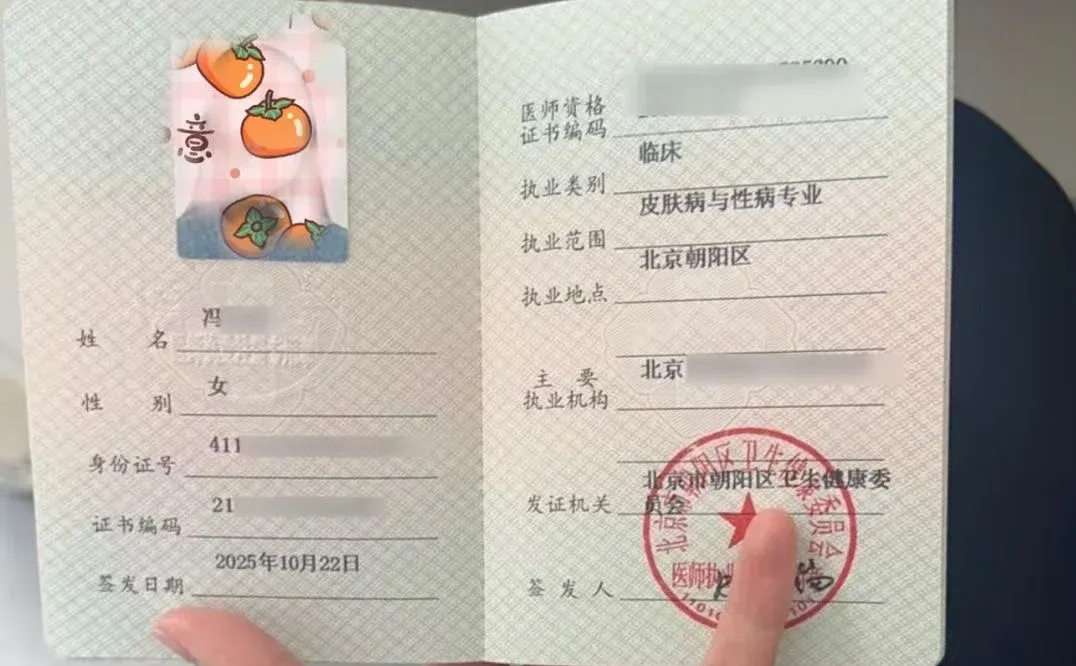 意
姓 名
冯
性 别
女
身份证号
411
证书编码
21
签发日期
2025年10月22日
医师资格
证书编码
执业类别
临床
执业范围
皮肤病与性病专业
执业地点
北京朝阳区
主 要
执业机构
北京
发证机关
北京市朝阳区卫生健康委
员会
签 发 人
北京市朝阳区卫生健康委员会
医师执业